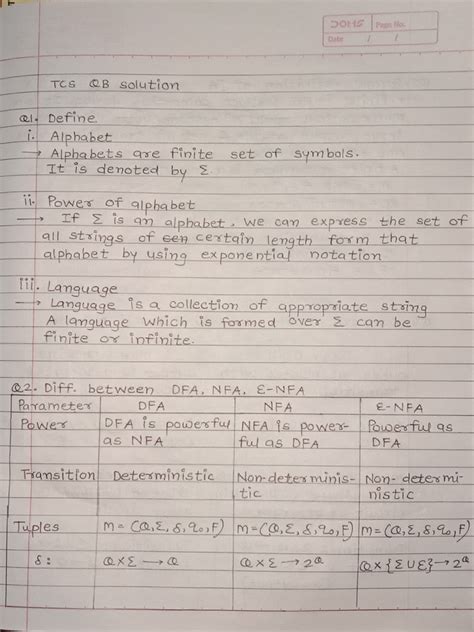 DOMS Page No.
Date / /
TCS QB solution
Q1. Define
i. Alphabet
→ Alphabets are finite set of symbols.
It is denoted by Σ.
ii. Power of alphabet
→ If Σ is an alphabet, we can express the set of
all strings of certain length form that
alphabet by using exponential notation
iii. Language
→ Language is a collection of appropriate string
A language which is formed over Σ can be
finite or infinite.
Q2. Diff. between DFA, NFA, ε-NFA
Parameter DFA NFA ε-NFA
Power DFA is powerful NFA is power- Powerful as
as NFA ful as DFA DFA
Transition Deterministic Non-determinis- Non-determi-
tic nistic
Tuples M = (Q, Σ, δ, q₀, F) M = (Q, Σ, δ, q₀, F) M = (Q, Σ, δ, q₀, F)
δ: Q × Σ → Q Q × Σ → 2^Q Q × {Σ ∪ ε} → 2^Q